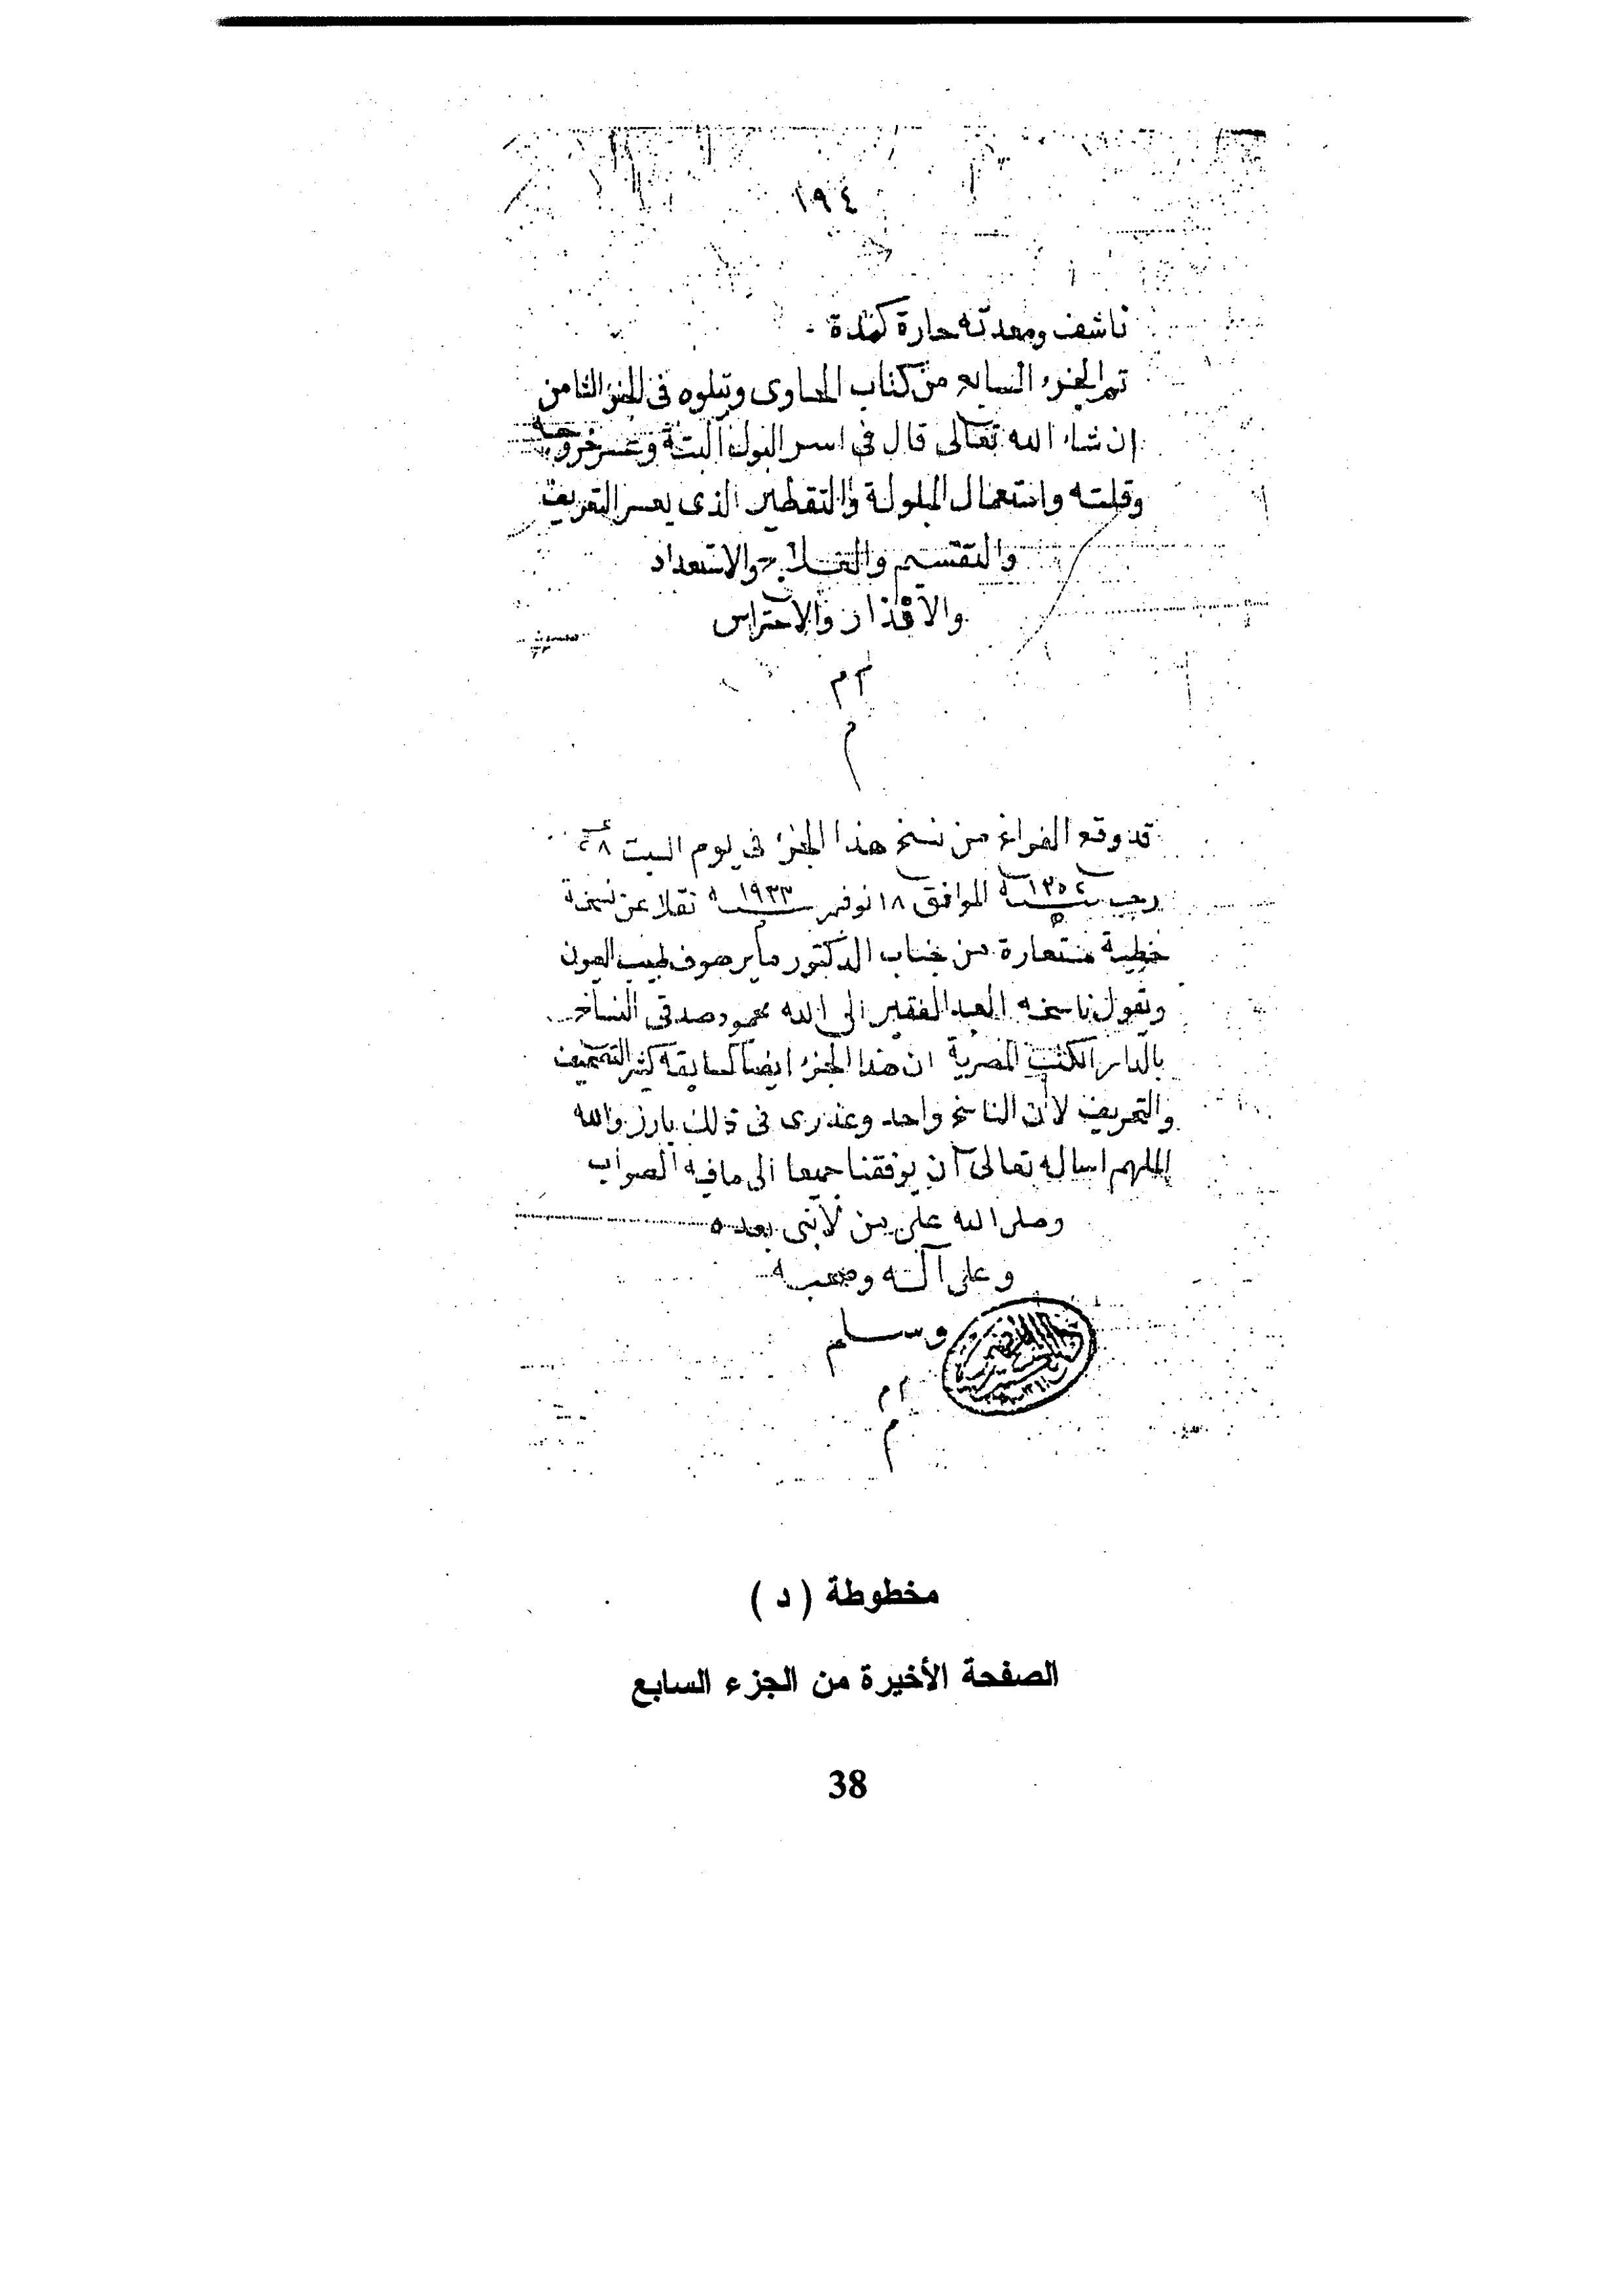 ١٩٤
ناشف ومعدته حارة كمدة.
تم الجزء السابع من كتاب الحاوى ويتلوه فى الجزء الثامن
إن شاء الله تعالى قال فى اسر البول البتة وعسر خروجه
وقلته واستعمال المبولة والتقطير الذى يعسر التعريف
والتقسيم والعلاج والاستعداد
والاقذار والاحتراس
ام
م
قد وقع الفراغ من نسخ هذا الجزء فى يوم السبت ٢٨
رجب سنة ١٣٥٢ الموافق ١٨ نوفمبر سنة ١٩٣٣ نقلا عن نسخة
خطية مستعارة من جناب الدكتور مايرهوف طبيب العيون
ويقول ناسخه العبد الفقير الى الله محمود صدقى النساخ
بالدار الكتب المصرية ان هذا الجزء ايضا كسابقه كثير التصحيف
والتحريف لأن الناسخ واحد وعذرى فى ذلك بارز والله
الملهم اساله تعالى أن يوفقنا جميعا الى ما فيه الصواب
وصلى الله على من لا نبى بعده
وعلى آله وصحبه
وسلم
ام
م
مخطوطة ( د )
الصفحة الأخيرة من الجزء السابع
38